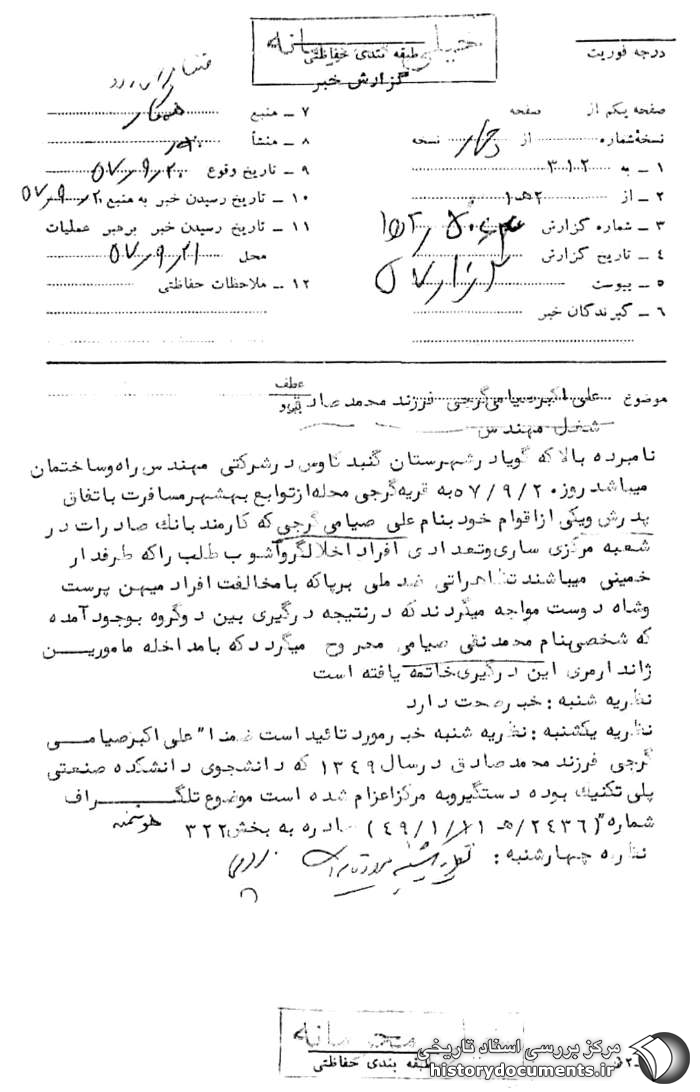 خیلی محرمانه
طبقه بندی حفاظتی
گزارش خبر
درجه فوریت
صفحه یکم از صفحه
نسخهٔ شماره از نسخه
۱ ـ به ۳۱۲
۲ ـ از ۲هـ۱
۳ ـ شماره گزارش
۴ ـ تاریخ گزارش
۵ ـ پیوست
۶ ـ گیرندگان خبر
۷ ـ منبع همکار
۸ ـ منشأ
۹ ـ تاریخ وقوع ۵۷٫۹٫۲۰
۱۰ ـ تاریخ رسیدن خبر به منبع ۵۷٫۹٫۲۰
۱۱ ـ تاریخ رسیدن خبر برهبر عملیات
محل ۵۷٫۹٫۲۱
۱۲ ـ ملاحظات حفاظتی
عطف
پیرو
موضوع علی اکبرصیامی گرجی فرزند محمد صادق
شغل مهندس
نامبرده بالا که گویا در شهرستان گنبد کاوس در شرکتی مهندس راه وساختمان
میباشد روز ۵۷/۹/۲۰ به قریه گرجی محله ازتوابع بهشهر مسافرت باتفاق
پدرش ویکی ازاقوام خود بنام علی صیامی گرجی که کارمند بانك صادرات در
شعبه مرکزی ساری وتعدادی افراد اخلالگر وآشوب طلب راکه طرفدار
خمینی میباشند تظاهراتی ضد ملی برپاکه بامخالفت افراد میهن پرست
وشاه دوست مواجه میگردند که درنتیجه درگیری بین دوگروه بوجود آمده
که شخصی بنام محمد نقی صیامی مجروح میگردد که بامداخله مامورین
ژاندارمری این درگیری خاتمه یافته است
نظریه شنبه : خبرصحت دارد
نظریه یکشنبه : نظریه شنبه خبر مورد تائید است ضمنا" علی اکبرصیامی
گرجی فرزند محمد صادق درسال ۱۳۴۹ که دانشجوی دانشکده صنعتی
پلی تکنیك بوده دستگیر و به مرکز اعزام شده است موضوع تلگراف
شماره" (۲۴۳۶/هـ ۴۹/۱/۲۱) صادره به بخش ۳۲۲
نظریه چهارشنبه :
خیلی محرمانه
طبقه بندی حفاظتی
مرکز بررسی اسناد تاریخی
historydocuments.ir